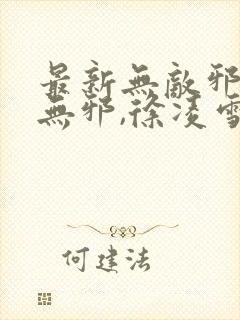 最新無敵邪
無邪,徐凌雪
何建法